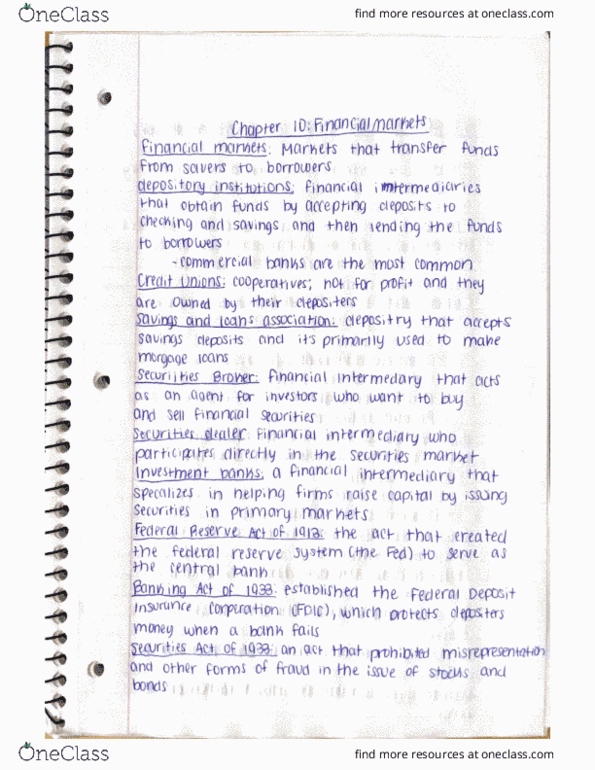 OneClass
find more resources at oneclass.com
Chapter 10: Financial markets
Financial markets: Markets that transfer funds
from savers to borrowers
depository institutions: financial intermediaries
that obtain funds by accepting deposits to
checking and savings and then lending the funds
to borrowers
- commercial banks are the most common
Credit Unions: cooperatives; not for profit and they
are owned by their depositers
Savings and loans association: depositry that accepts
savings deposits and its primarily used to make
morgage loans
Securities Broker: financial intermedary that acts
as an agent for investors who want to buy
and sell financial securities
Securities dealer: Financial intermediary who
participates directly in the securities market
Investment banks: a financial intermediary that
specalizes in helping firms raise capital by issuing
securities in primary markets
Federal Reserve Act of 1913: the act that created
the federal reserve system (the Fed) to serve as
the central bank
Banking Act of 1933: established the Federal Deposit
Insurance Corporation (FDIC), which protects depositers
money when a bank fails
Securities Act of 1933: an act that prohibited misrepresentation
and other forms of fraud in the issue of stocks and
bonds
OneClass
find more resources at oneclass.com